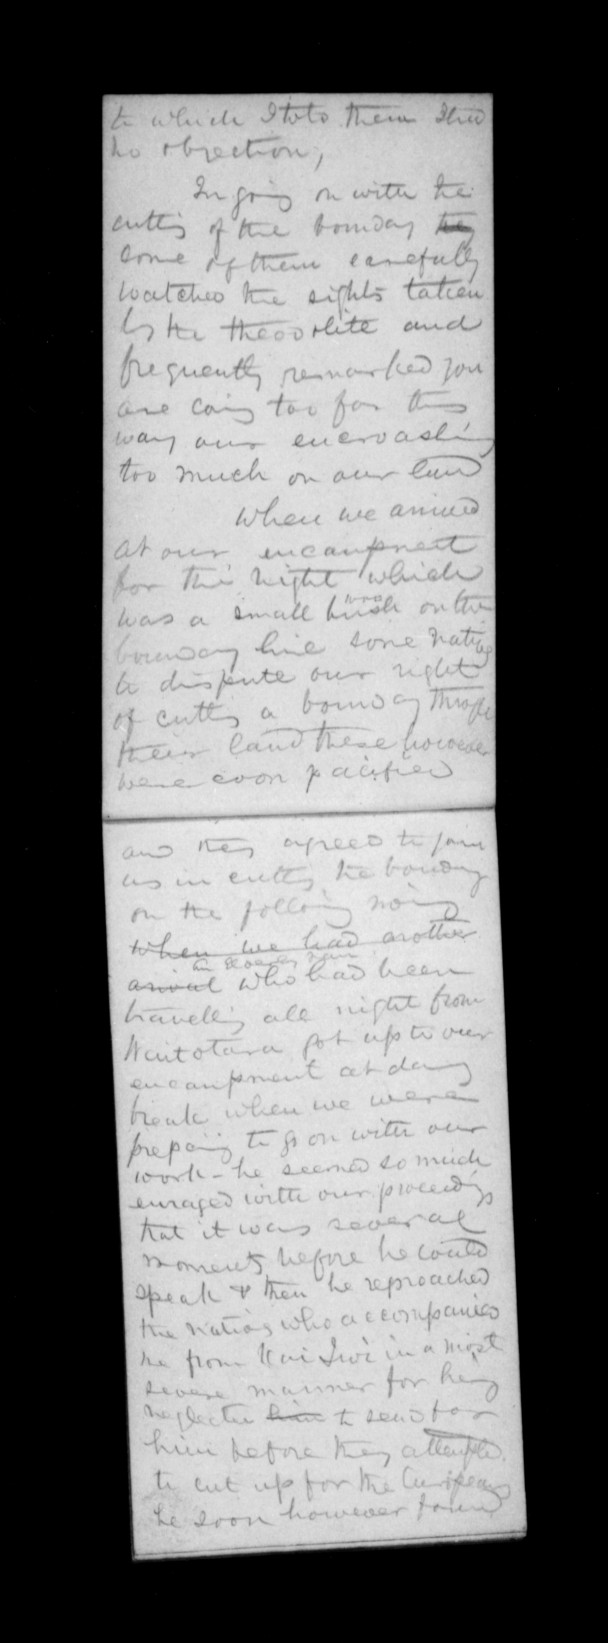 to which I told them I had
no objection,
In going on with the
cutting of the bounday they
some of them carefully
watched the sights taken
by the theodolite and
frequently remarked you
are coing too far this
way our encroaching
too much on our land
When we arrived
at our encampment
for the night which
was a small bush on the
boundary line some natives
to dispute our right
of cutting a bounday through
their land these however
were soon pacified
and they agreed to join
us in cutting the bounday
on the following moing
when we had another
arival who had been
travelling all night from
Waitotara got up to our
encampment at day
break when we were
prepaing to go on with our
work - he seemed so much
enraged with our proceedings
that it was several
moments before he could
speak & then he reproached
the natives who accompanied
me from Kai Iwi in a most
severe manner for having
neglected him to send for
him before they attempted
to cut up for the Europeans
he soon however found